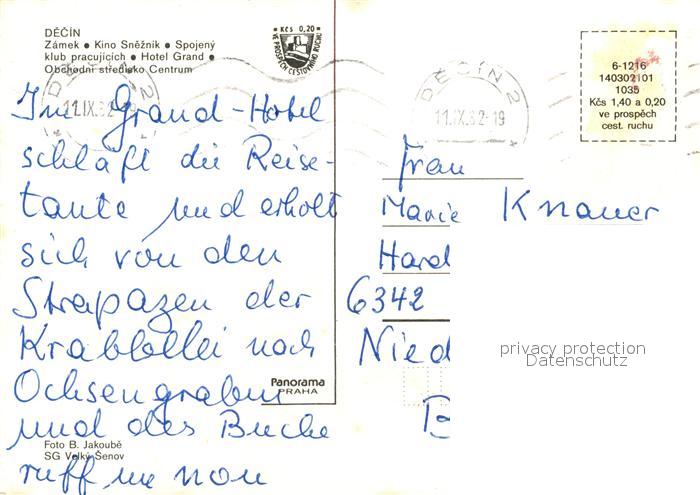 DĚČÍN
Zámek • Kino Sněžník • Spojený
klub pracujících • Hotel Grand •
Obchodní středisko Centrum
Kčs 0,20
VE PROSPĚCH CESTOVNÍHO RUCHU
DĚČÍN 2
11.IX.82-19
6-1216
140302101
1035
Kčs 1,40 a 0,20
ve prospěch
cest. ruchu
Im Grand-Hotel
schläft die Reise-
tante und erholt
sich von den
Strapazen der
nach
Ochsengraben
und des Buche
Frau
Marie Knauer
Hard
6342
Nied
privacy protection
Datenschutz
Panorama
PRAHA
Foto B. Jakoubě
SG Velký Šenov